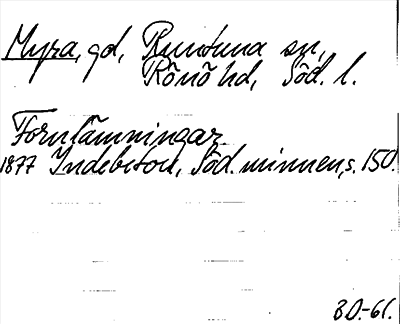 Myra, gd, Runtuna sn,
Rönö hd, Söd. l.
Fornlämningar
1877 Indebetou, Söd. minnen, s. 150.
BD.-61.